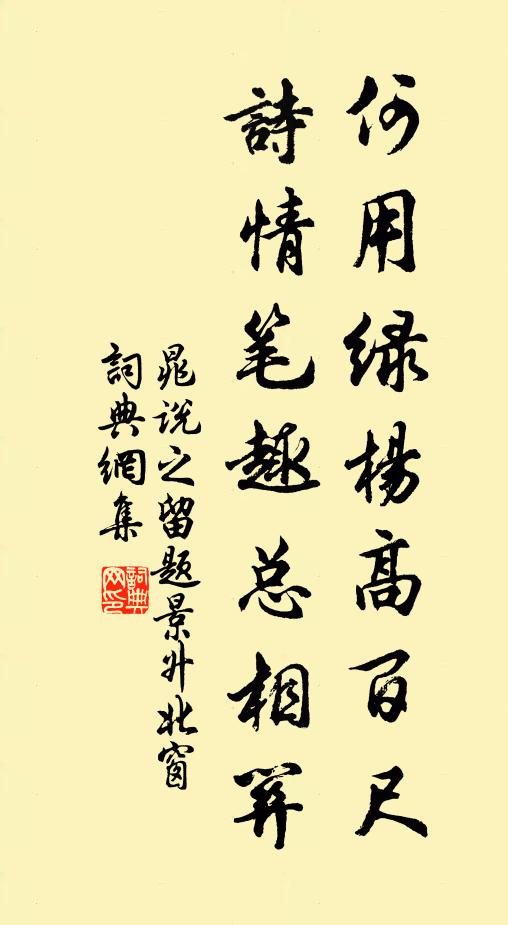 何用緑楊高百尺
詩情笔趣总相
晁說之留题景升北窗
詞典網集
詞典网印